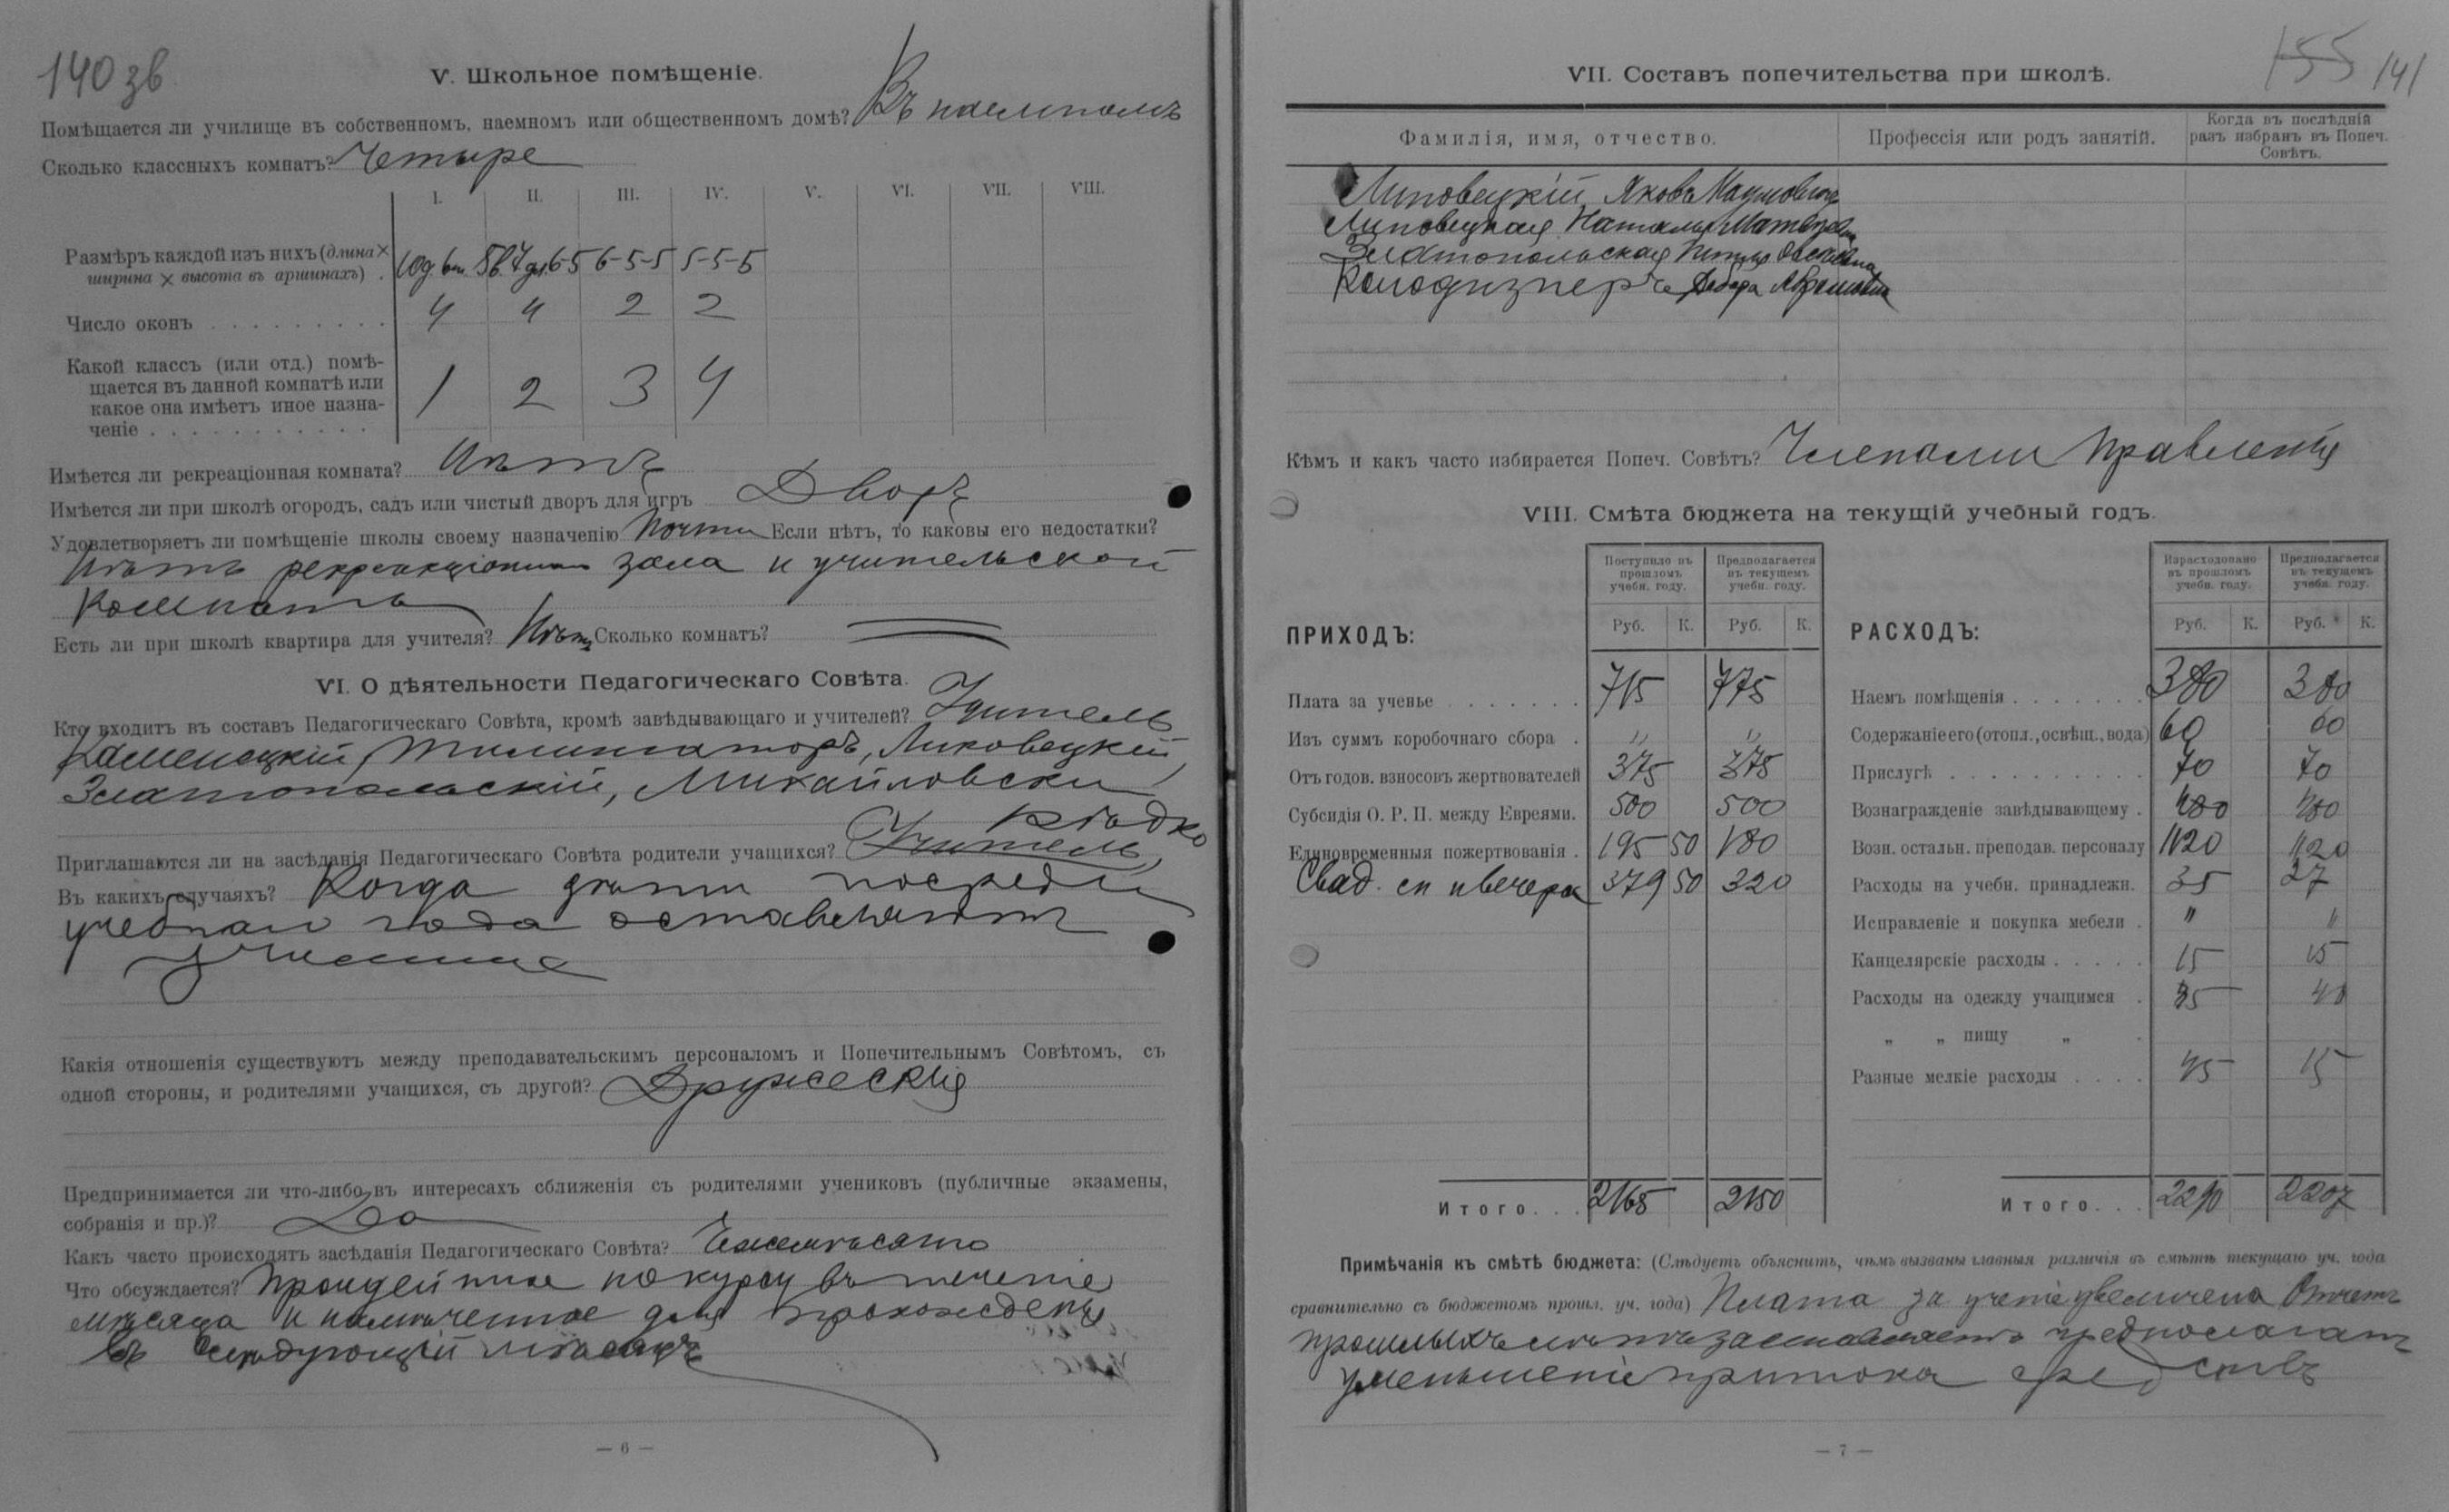 140 зв
V. Школьное помѣщеніе.
Помѣщается ли училище въ собственномъ, наемномъ или общественномъ домѣ? Въ наемномъ
Сколько классныхъ комнатъ? Четыре
I. II. III. IV. V. VI. VII. VIII.
Размѣръ каждой изъ нихъ (длина ×
ширина × высота въ аршинахъ) . 6-5-5 5-5-5
Число оконъ 4 4 2 2
Какой классъ (или отд.) помѣ-
щается въ данной комнатѣ или
какое она имѣетъ иное назна-
ченіе 1 2 3 4
Имѣется ли рекреаціонная комната? Нѣтъ
Имѣется ли при школѣ огородъ, садъ или чистый дворъ для игръ Дворъ
Удовлетворяетъ ли помѣщеніе школы своему назначенію Почти Если нѣтъ, то каковы его недостатки?
Нѣтъ рекреаціонной зала и учительской
комнаты
Есть ли при школѣ квартира для учителя? Нѣтъ Сколько комнатъ?
VI. О дѣятельности Педагогическаго Совѣта.
Кто входитъ въ составъ Педагогическаго Совѣта, кромѣ завѣдывающаго и учителей? Учитель
Каменецкій, Липовецкій,
Златопольскій, Михайловски
Приглашаются ли на засѣданія Педагогическаго Совѣта родители учащихся? Учитель, рѣдко
Въ какихъ случаяхъ? Когда дѣти посреди
учебнаго года оставляютъ
училище
Какія отношенія существуютъ между преподавательскимъ персоналомъ и Попечительнымъ Совѣтомъ, съ
одной стороны, и родителями учащихся, съ другой? Дружескія
Предпринимается ли что-либо въ интересахъ сближенія съ родителями учениковъ (публичные экзамены,
собранія и пр.)? Да
Какъ часто происходятъ засѣданія Педагогическаго Совѣта? Ежемѣсячно
Что обсуждается? Пройденное по курсу въ теченіе
мѣсяца и намѣченное для прохожденія
въ слѣдующій мѣсяцъ
— 6 —
155 141
VII. Составъ попечительства при школѣ.
Фамилія, имя, отчество. Профессія или родъ занятій. Когда въ послѣдній
разъ избранъ въ Попеч.
Совѣтъ.
Липовецкій Яковъ Наумовичъ
Липовецкая Наталья
Златопольская
Авраамовна
Кѣмъ и какъ часто избирается Попеч. Совѣтъ? Членами Правленія
VIII. Смѣта бюджета на текущій учебный годъ.
ПРИХОДЪ: Поступило въ прошломъ учебн. году. Предполагается въ текущемъ учебн. году.
Руб. К. Руб. К.
Плата за ученье 715 775
Изъ суммъ коробочнаго сбора . " "
Отъ годов. взносовъ жертвователей 375 375
Субсидія О. Р. П. между Евреями. 500 500
Единовременныя пожертвованія . 195 50 180
Свад. сп и вечера 379 50 320
Итого. . . 2165 2150
РАСХОДЪ: Израсходовано въ прошломъ учебн. году. Предполагается въ текущемъ учебн. году.
Руб. К. Руб. К.
Наемъ помѣщенія 380 380
Содержаніе его (отопл., освѣщ., вода) 60 60
Прислугѣ 70 70
Вознагражденіе завѣдывающему . 480 480
Возн. остальн. преподав. персоналу 1120 1120
Расходы на учебн. принадлежн. 35 27
Исправленіе и покупка мебели . " "
Канцелярскіе расходы 15 15
Расходы на одежду учащимся . 35 40
" " пищу "
Разные мелкіе расходы 15
Итого. . . 2207
Примѣчанія къ смѣтѣ бюджета: (Слѣдуетъ объяснить, чѣмъ вызваны главныя различія въ смѣтѣ текущаго уч. года
сравнительно съ бюджетомъ прошл. уч. года) Плата за ученіе увеличена Отчетъ
прошлыхъ лѣтъ заставляетъ предполагать
уменьшеніе притока средствъ
— 7 —